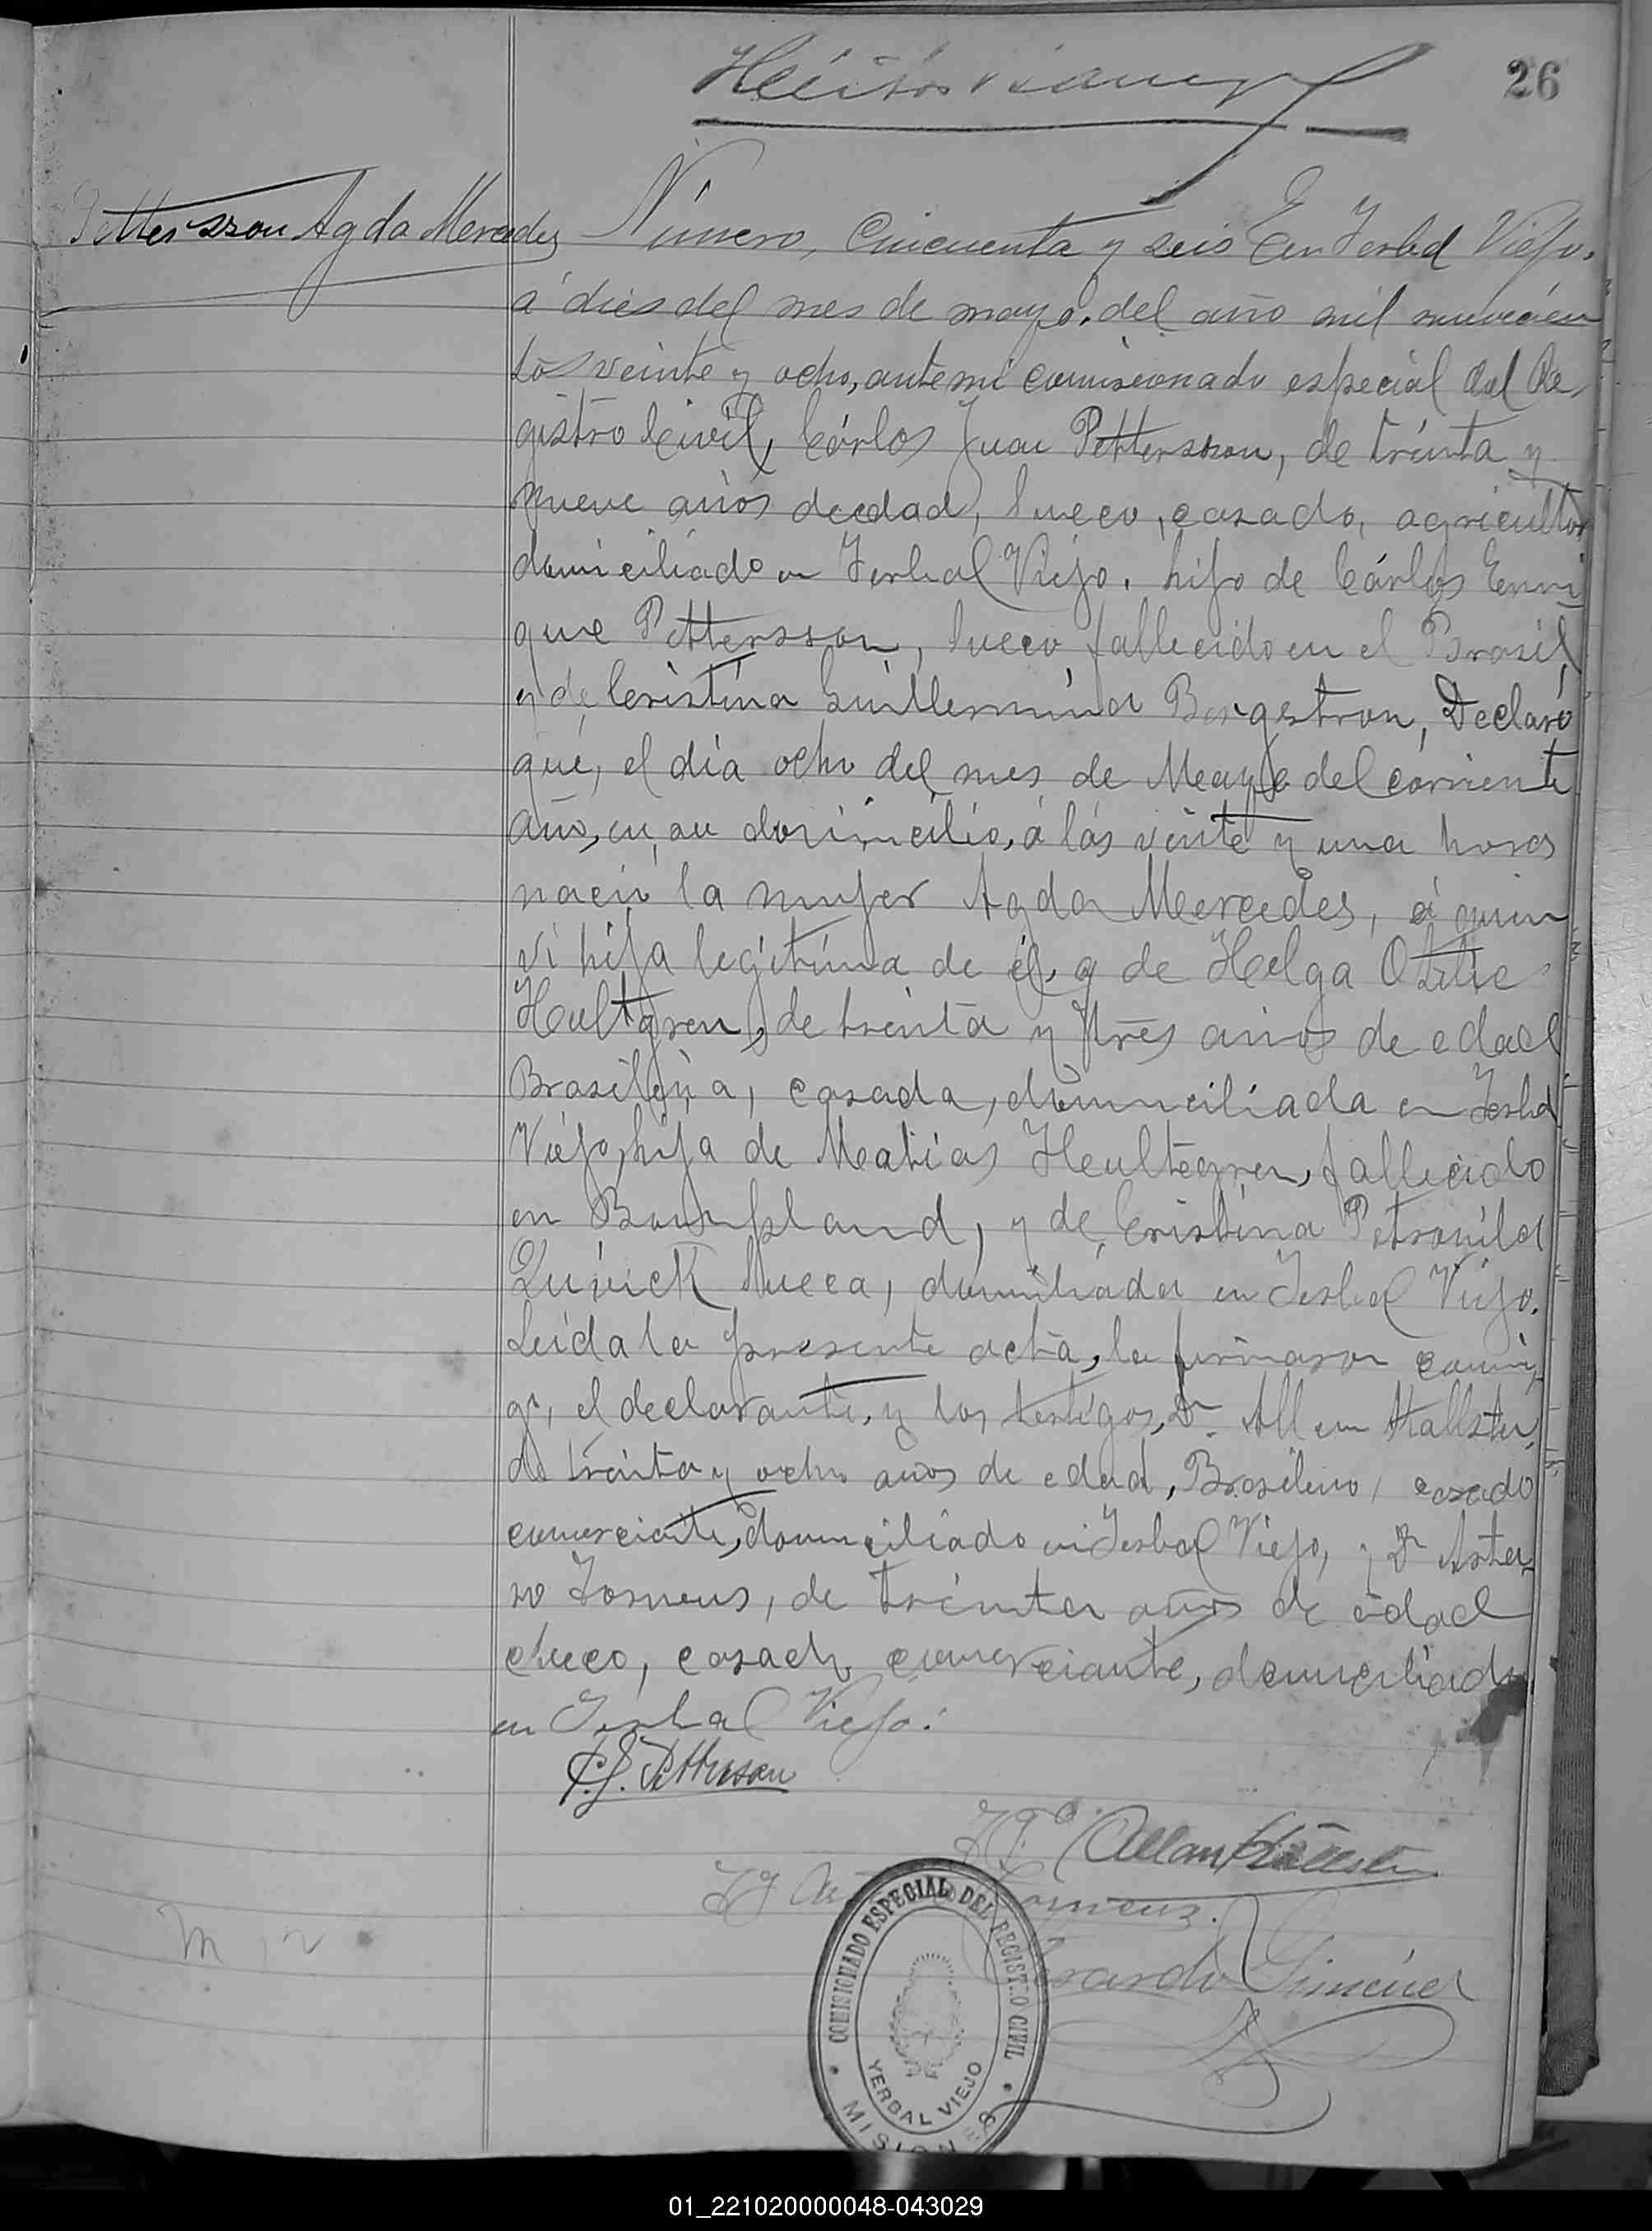 26
Pettersson Agda Mercedes
Número, Cincuenta y seis En Yerbal Viejo.
á dies del mes de mayo. del año mil novecien
tos veinte y ocho, ante mi comisionado especial del Re
gistro Civil, Cárlos Juan Pettersson, de trinta y
nueve años de edad, Sueco, casado, agricultor
domiciliado en Yerbal Viejo. hijo de Cárlos Enri
que Pettersson, Sueco fallecido en el Brasil,
y de Cristina Guillermina Bergstron, Declaró
que, el día ocho del mes de Mayo del corriente
año, en su domicilio, á lás veinte y una horas
nació la mujer Agda Mercedes, á quien
vi hija legitima de él, y de Helga
Hultgren, de trinta y tres años de edad
Brasileña, casada, domiciliada en Yerbal
Viejo, hija de Matias Heultegren, fallecido
en Bompland, y de Cristina Petronila
Sueca, domiliada en Yerbal Viejo.
Leída la presente acta, la firmaron conmi
go, el declarante, y los testigos, Dn Allen Hallsten,
de trinta y ocho años de edad, Brasilero, casado
comerciante, domiciliado en Yerbal Viejo, y Dn Artu
ro Forneus, de treinta años de edad
sueco, casado comerciante, domiciliado
en Yerbal Viejo.
C.J. Pettersson
Tgo. Allan Hällstén
Tg Forneus.
Gerardo Giménez
COMISIONADO ESPECIAL DEL REGISTRO CIVIL
YERBAL VIEJO
MISIONES
01_221020000048-043029